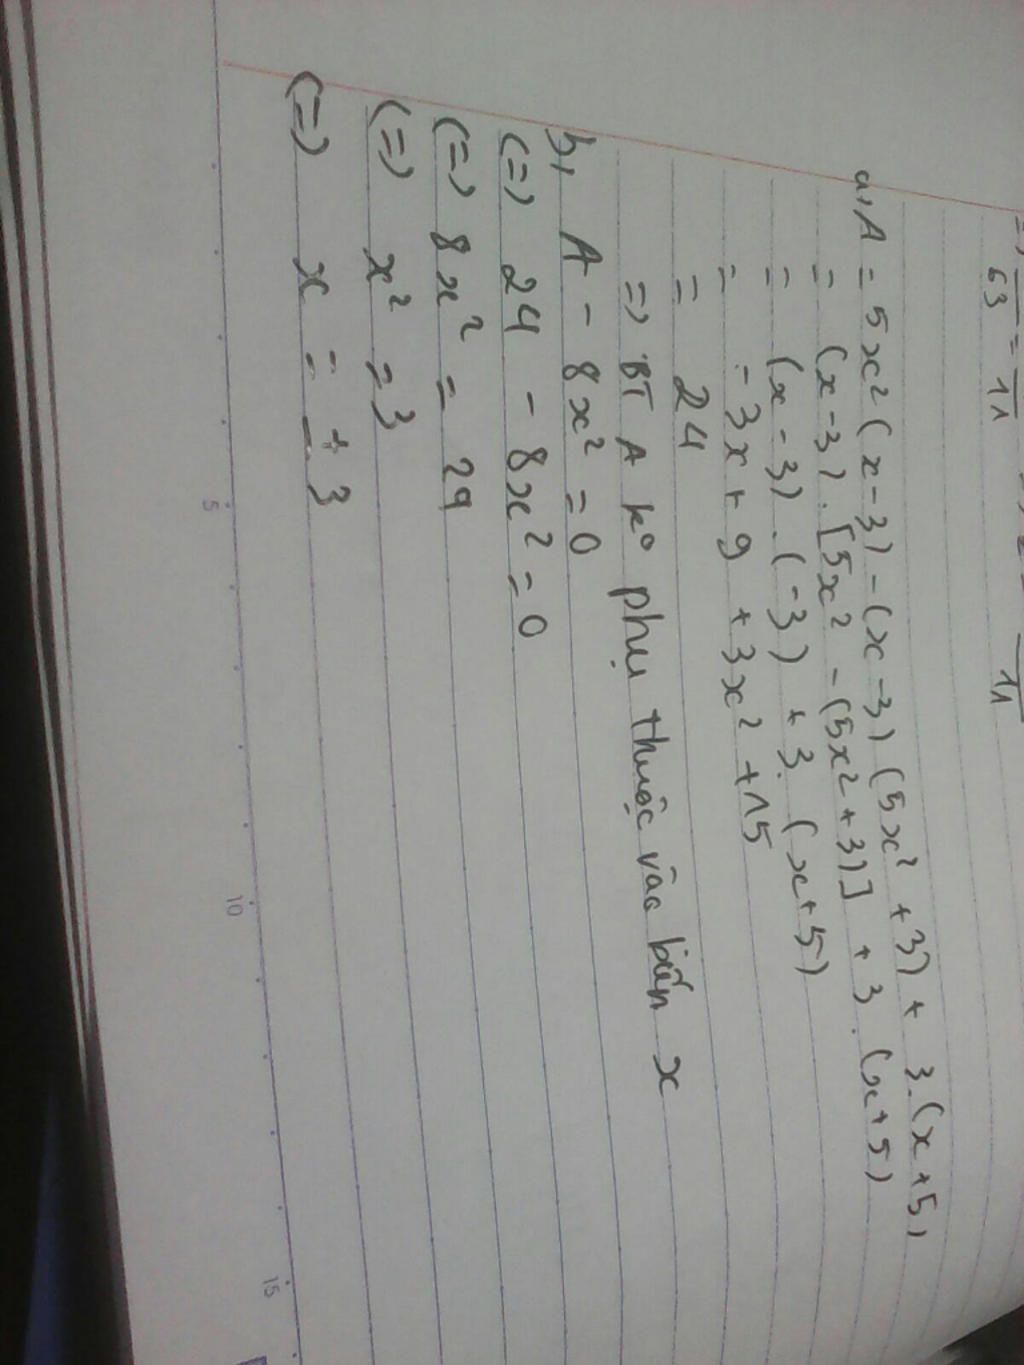 =) 63 = 11
11
a, A = 5x² (x-3) - (x-3) (5x² + 3) + 3.(x+5)
= (x-3).[5x² - (5x²+3)] + 3.(x+5)
= (x-3).(-3) + 3.(x+5)
= -3x + 9 + 3x² + 15
= 24
=) BT A kº phụ thuộc vào biến x
b, A - 8x² = 0
(=) 24 - 8x² = 0
(=) 8x² = 29
(=) x² = 3
(=) x = ± 3
5
10
15